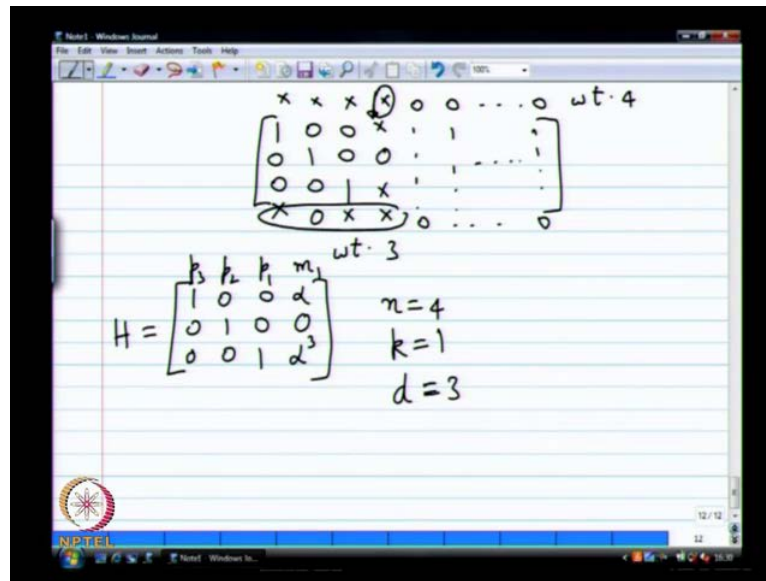 Note1 - Windows Journal
File Edit View Insert Actions Tools Help
100%
x x x x 0 0 - - - 0 wt. 4
1 0 0 x . 1 .
0 1 0 0 . . - - - - 1
0 0 1 x . . .
x 0 x x 0 . . . . 0
wt. 3
p3 p2 p1 m1
1 0 0 α
H = 0 1 0 0
0 0 1 α³
n=4
k=1
d=3
12 / 12
12
NPTEL
Note1 - Windows Jo...
16:30